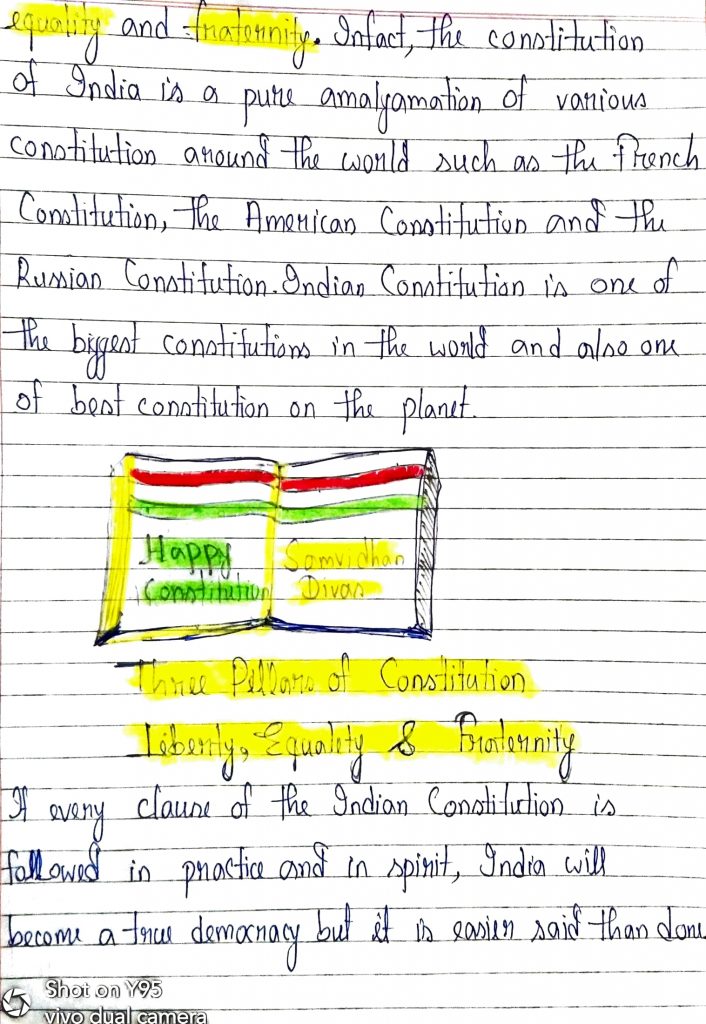 equality and fraternity. Infact, the constitution
of India is a pure amalgamation of various
constitution around the world such as the French
Constitution, the American Constitution and the
Russian Constitution. Indian Constitution is one of
the biggest constitutions in the world and also one
of best constitution on the planet.
Happy Samvidhan
Constitution Divas
Three Pillars of Constitution
Liberty, Equality & Fraternity
If every clause of the Indian Constitution is
followed in practice and in spirit, India will
become a true democracy but it is easier said than done
Shot on Y95
vivo dual camera